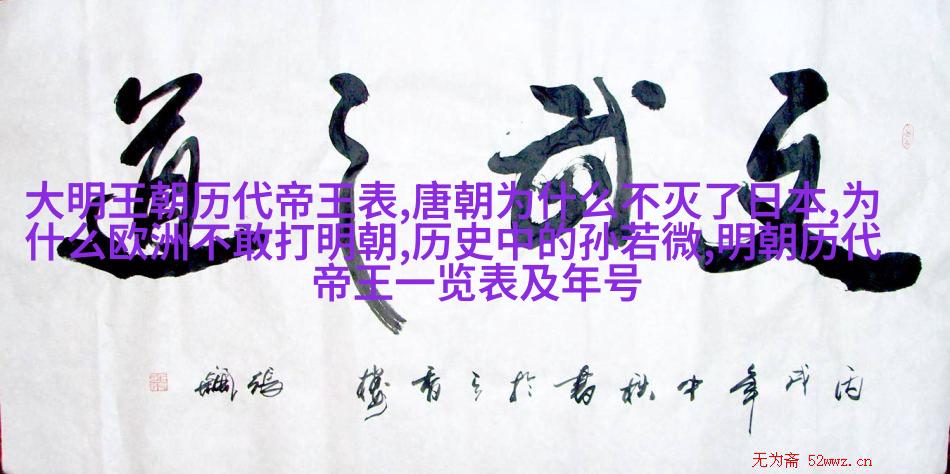 武之道
大明王朝历代帝王表,唐朝为什么不灭了日本,为
什么欧洲不敢打明朝,历史中的孙若微,明朝历代
帝王一览表及年号
丙戌年中秋書於
无为斋 52wwz.cn